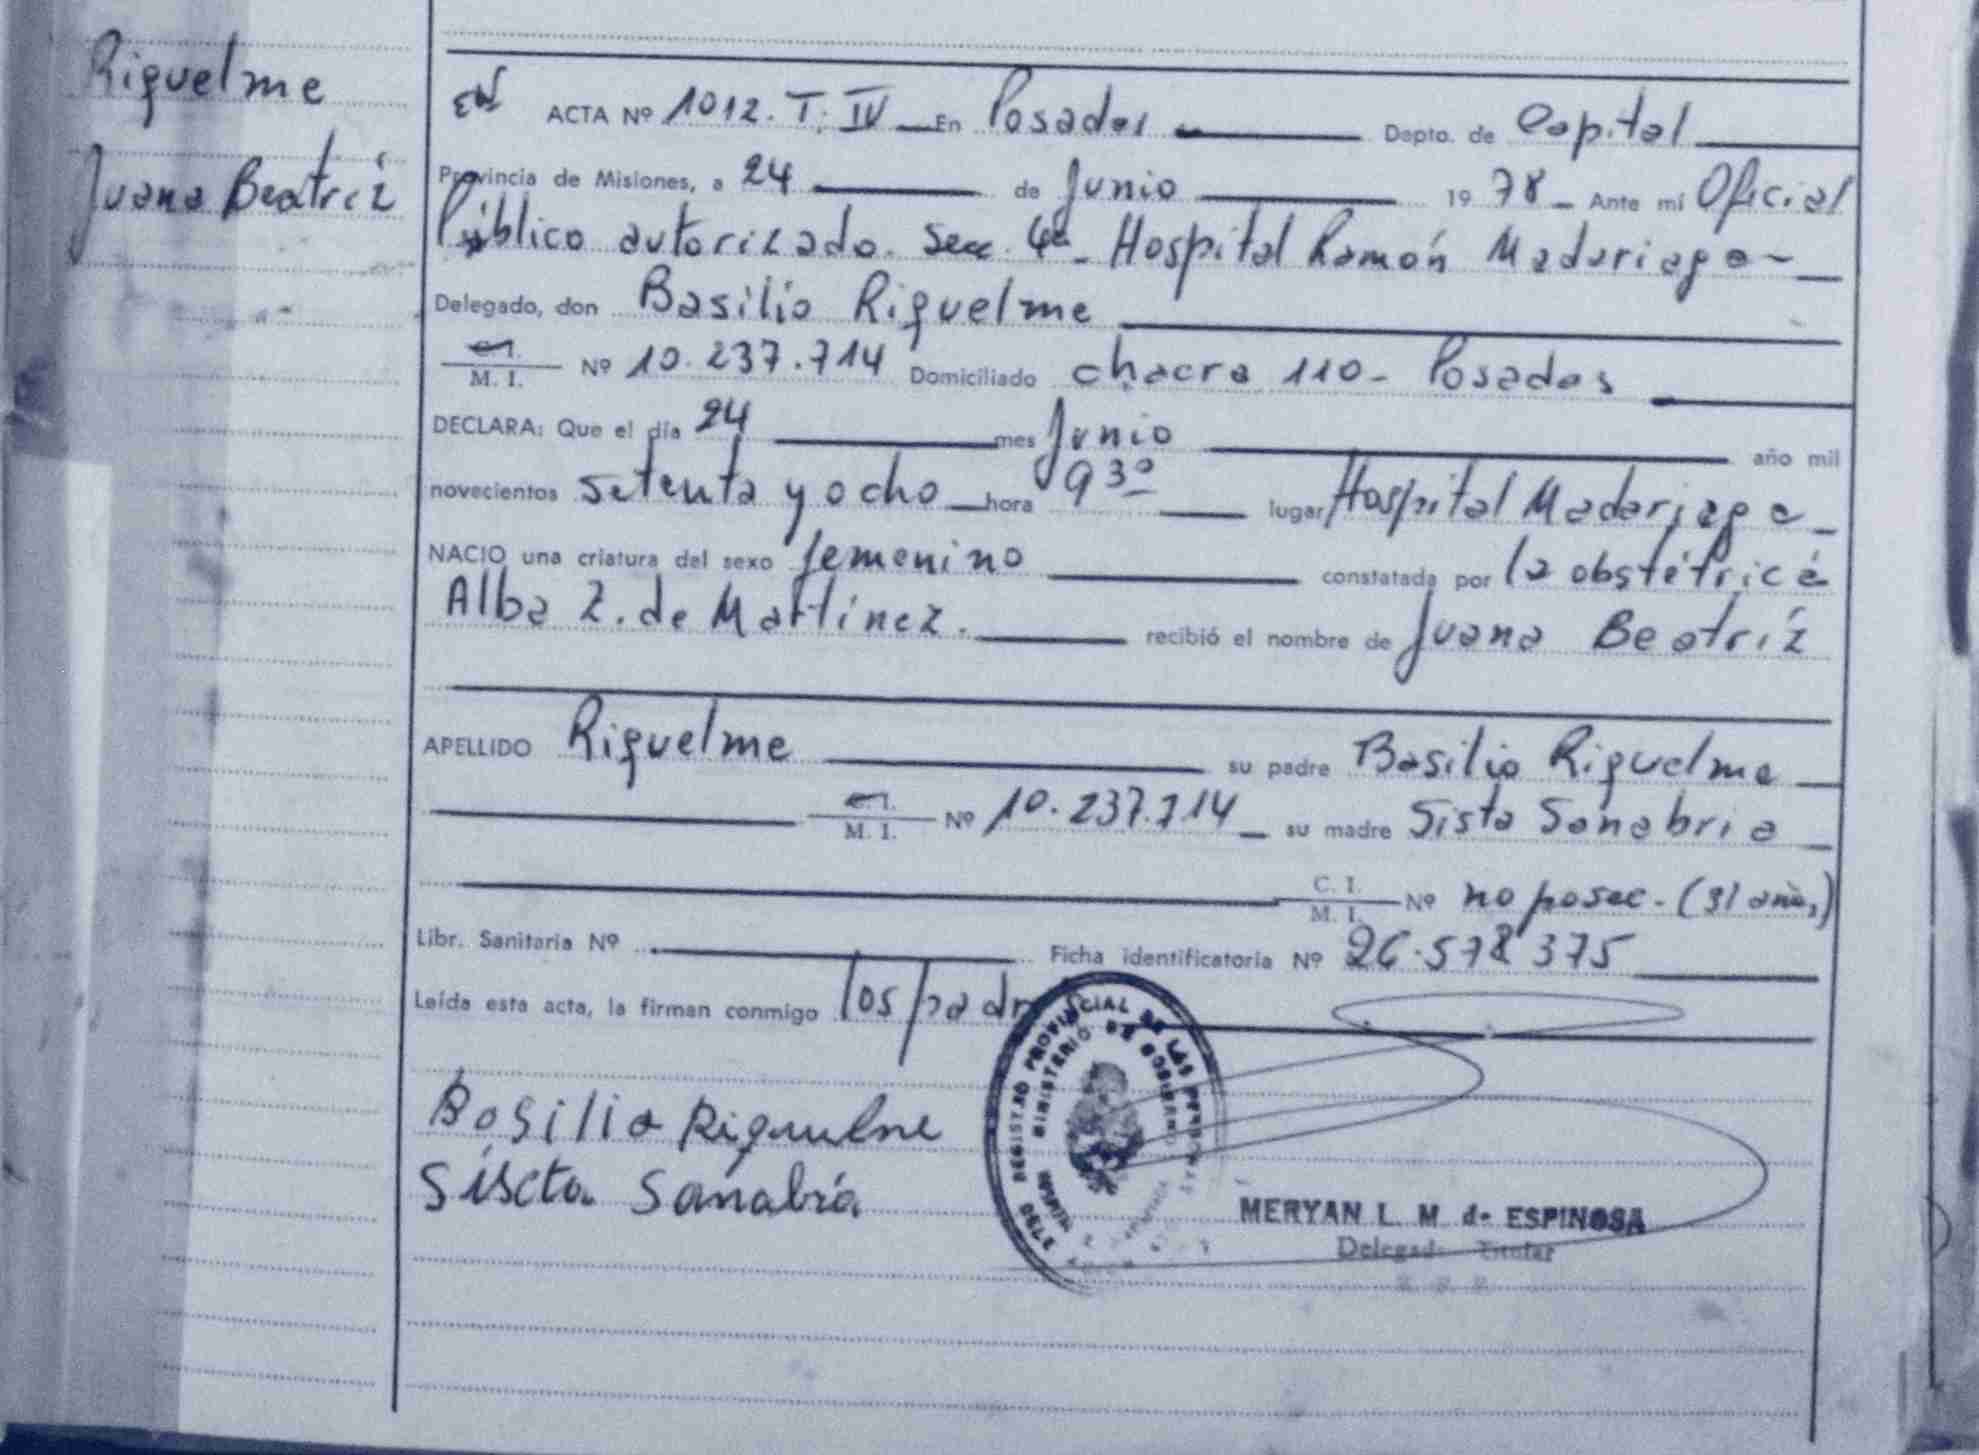 Riquelme
Juana Beatríz
ACTA Nº 1012. T. IV En Posadas Depto. de Capital
Provincia de Misiones, a 24 de Junio 19 78 Ante mi Oficial
Público autorizado. Sec. 4ª - Hospital Ramón Madariaga
Delegado, don Basilio Riquelme
C. I. / M. I. Nº 10.237.714 Domiciliado chacra 110 - Posadas
DECLARA: Que el día 24 mes Junio año mil
novecientos setenta y ocho hora 9 30 lugar Hospital Madariaga
NACIO una criatura del sexo femenino constatada por la obstétrica
Alba Z. de Martínez. recibió el nombre de Juana Beatríz
APELLIDO Riquelme su padre Basilio Riquelme
C. I. / M. I. Nº 10.237.714 su madre Sista Sanabria
C. I. / M. I. Nº no posee. (31 años)
Libr. Sanitaria Nº Ficha identificatoria Nº 26.578 375
Leída esta acta, la firman conmigo los padr
Basilio Riquelme
Siscta Sanabria
REGISTRO PROVINCIAL DE LAS PERSONAS
MINISTERIO DE GOBIERNO
MERYAN L. M. de ESPINOSA
Delegada Titular